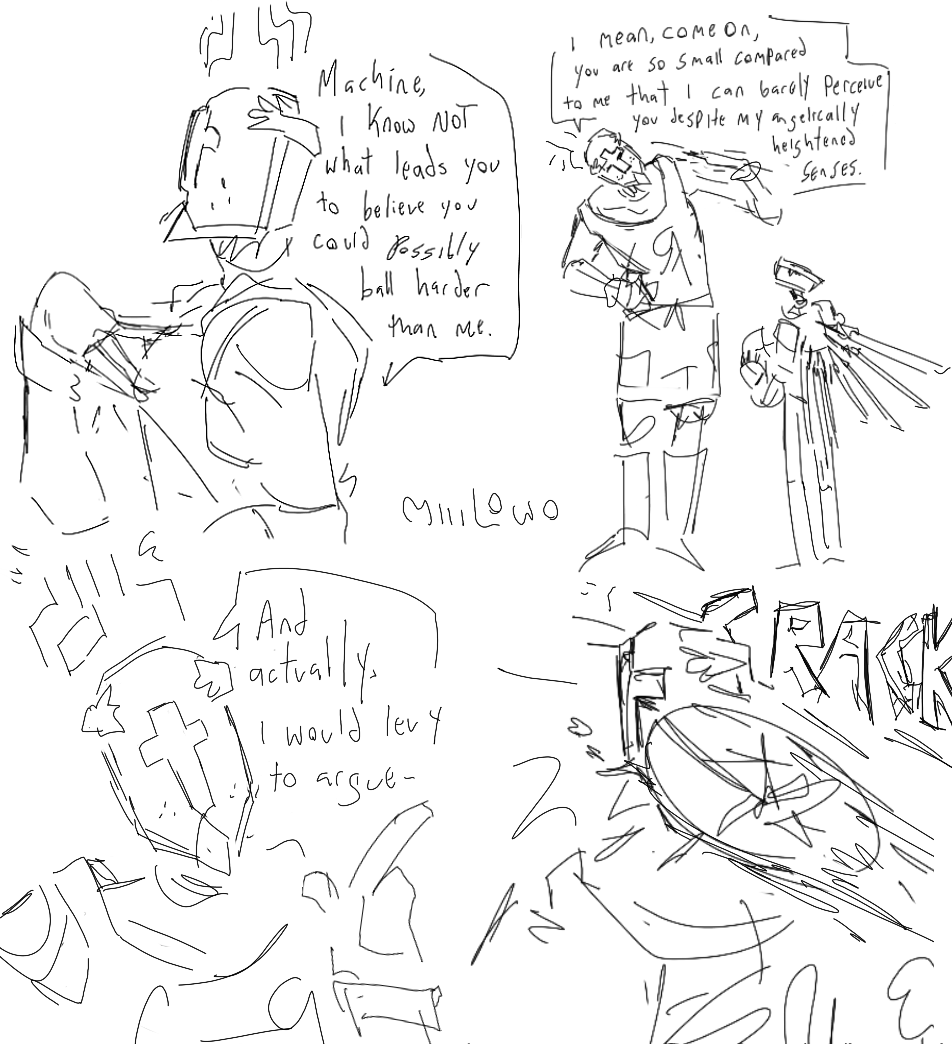 Machine,
I know NOT
what leads you
to believe you
could possibly
ball harder
than me.
I mean, come on,
you are so small compared
to me that I can barely perceive
you despite my angelically
heightened
senses.
MIIILOWO
And
actually,
I would levy
to argue-
CRACK